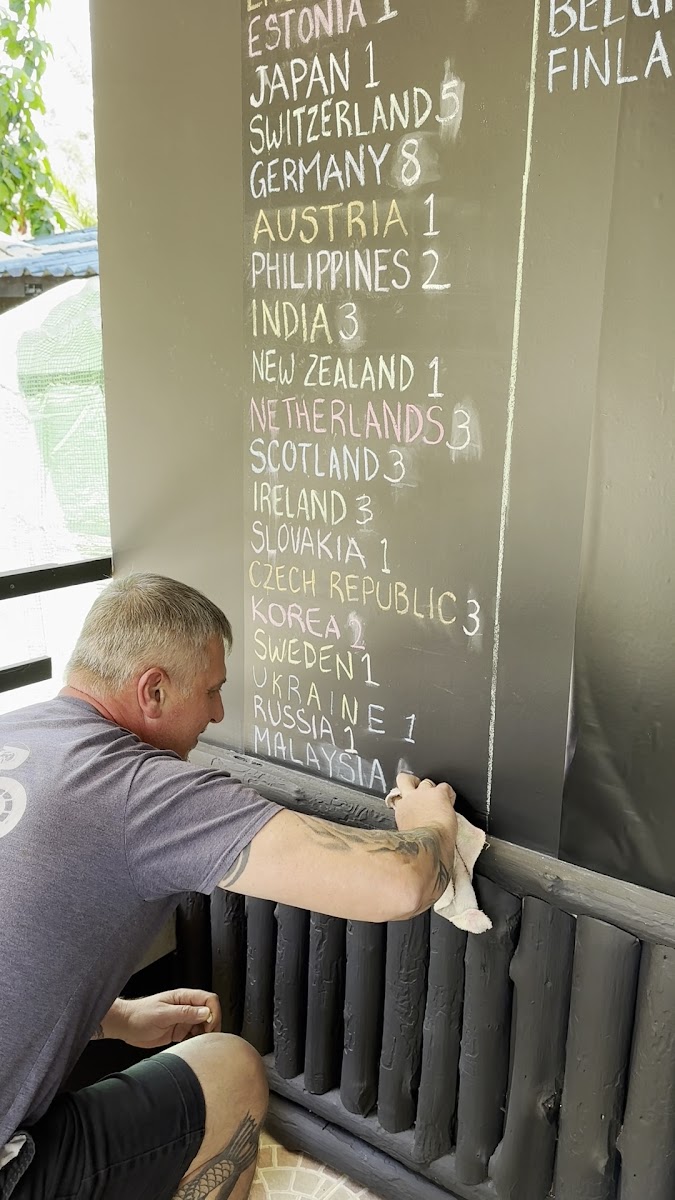 ESTONIA 1
JAPAN 1
SWITZERLAND 5
GERMANY 8
AUSTRIA 1
PHILIPPINES 2
INDIA 3
NEW ZEALAND 1
NETHERLANDS 3
SCOTLAND 3
IRELAND 3
SLOVAKIA 1
CZECH REPUBLIC 3
KOREA 2
SWEDEN 1
UKRAINE 1
RUSSIA 1
MALAYSIA
BELGI
FINLA